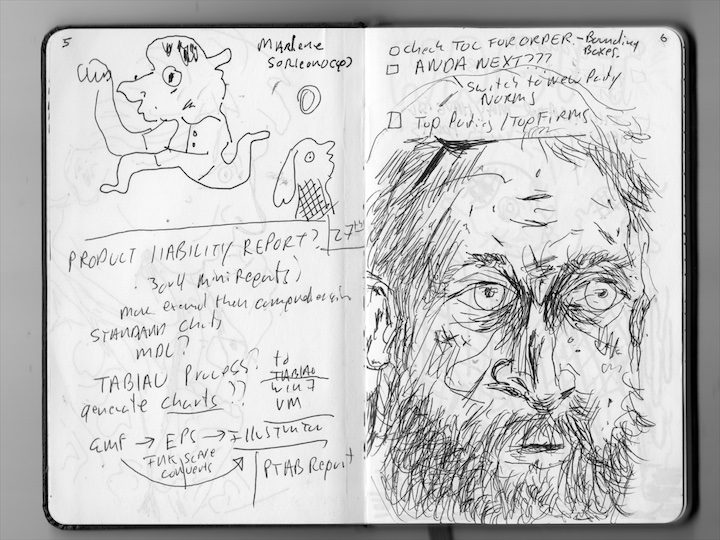 5
Marlene
PRODUCT LIABILITY REPORT?
27th
3 or 4 Mini Reports?
more
then comprehensive
STANDARD charts
MDL?
TABLAU Process? to
TABLAU
WIN 7
VM
generate charts??
EMF → EPS → ILLUSTRATOR
INKSCAPE
converts
PTAB Report
6
check TOC FOR ORDER. - Bounding
Boxes.
ANDA NEXT???
Switch to new Party
NORMS
Top Parties / Top FIRMS